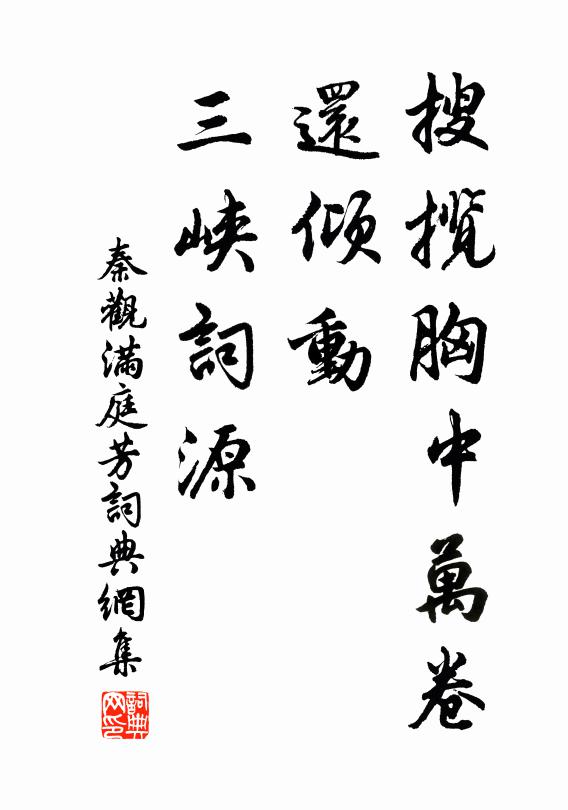 搜攬胸中萬卷
還傾動
三峽詞源
秦觀滿庭芳詞典網集
詞典网印